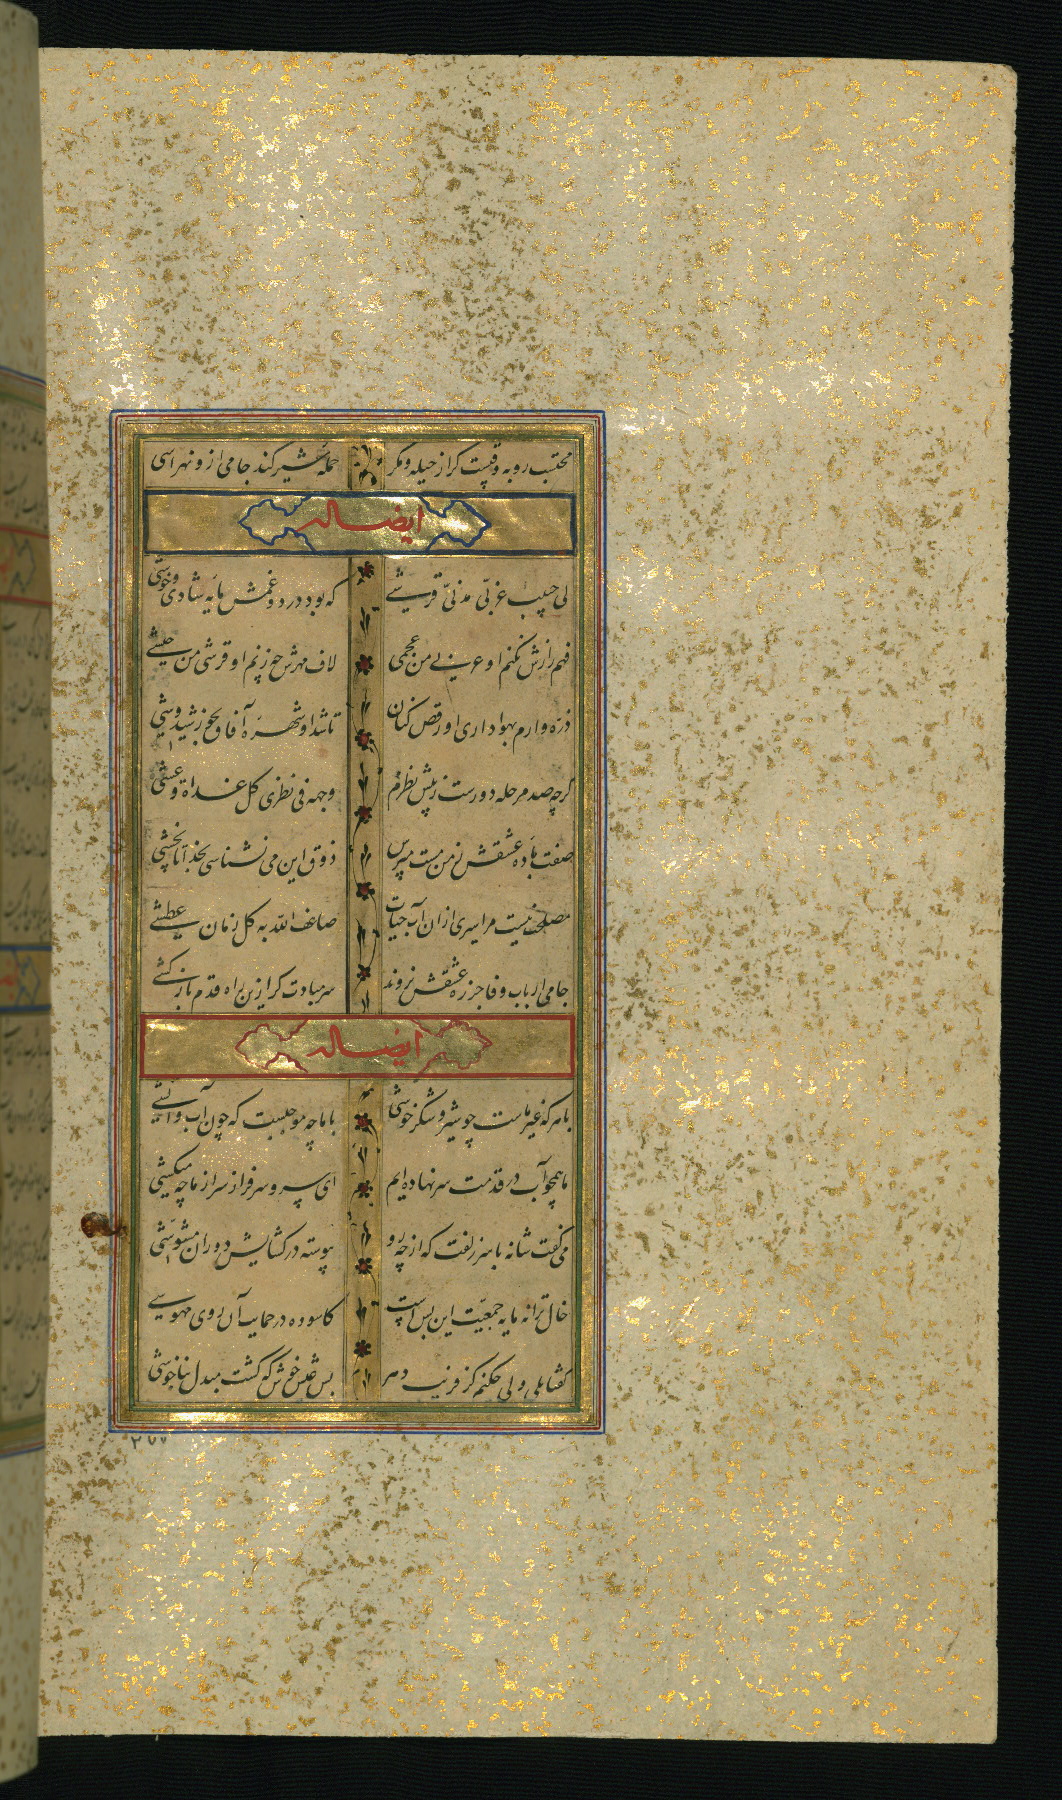 محتسب روبه وقتست کز از حیله و مکر حمله شیر کند جامی ازو نهراسی
ایضاله
لی حبیب عربی مدنی قرشی که بود درد و غمش مایه شادی و خوشی
فهم رازش نکنم او عربی من عجمی لاف مهرش چه زنم او قرشی من حبشی
ذره وارم بهواداری او رقص کنان تا شد او شهره آفاق بخورشید وشی
گرچه صد مرحله دورست ز پیش نظرم وجهه فی نظری کل غداة و عشی
صفت باده عشقش ز من مست مپرس ذوق این می نشناسی بخدا تا نچشی
مصلحت نیست مرا سیری ازان آب حیات ضاعف الله به کل زمان عطشی
جامی ارباب وفا جز ره عشقش نروند سر مبادت گر ازین راه قدم بازکشی
ایضاله
با هر که غیر ماست چو شیر و شکر خوشی با ما چه موجبست که چون آب و آتشی
ما همچو آب در قدمت سر نهاده ایم ای سرو سرفراز سر از ما چه میکشی
می گفت شانه با سر زلفت که از چه رو پیوسته در کشایش دوران مشوشی
خال ترا نه مایه جمعیت این بس است کاسوده در حمایت آن روی مهوشی
گفتا بلی ولی چکنم کز فریب دهر بس عیش خوش که گشت مبدل بناخوشی
۲۷۷